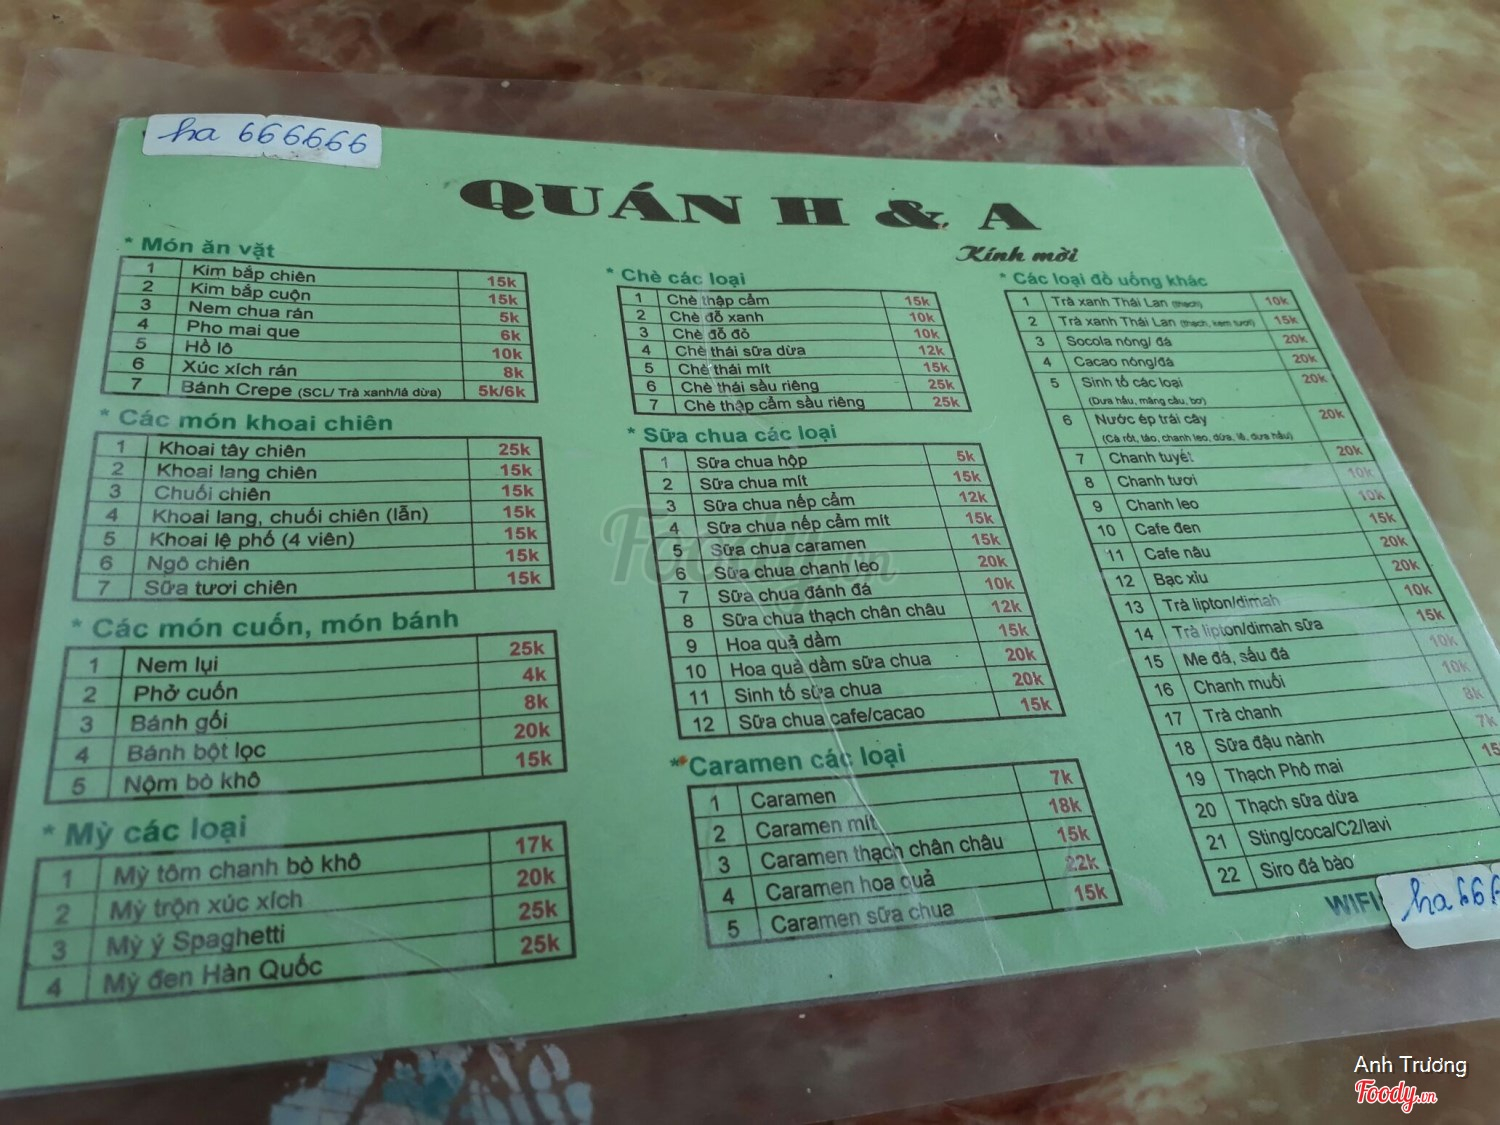 ha 666666
QUÁN H & A
Kính mời
* Món ăn vặt
1 Kim bắp chiên 15k
2 Kim bắp cuộn 15k
3 Nem chua rán 5k
4 Pho mai que 6k
5 Hồ lô 10k
6 Xúc xích rán 8k
7 Bánh Crepe (SCL/ Trà xanh/lá dừa) 5k/6k
* Các món khoai chiên
1 Khoai tây chiên 25k
2 Khoai lang chiên 15k
3 Chuối chiên 15k
4 Khoai lang, chuối chiên (lẫn) 15k
5 Khoai lệ phố (4 viên) 15k
6 Ngô chiên 15k
7 Sữa tươi chiên 15k
* Các món cuốn, món bánh
1 Nem lụi 25k
2 Phở cuốn 4k
3 Bánh gối 8k
4 Bánh bột lọc 20k
5 Nộm bò khô 15k
* Mỳ các loại
1 Mỳ tôm chanh bò khô 17k
2 Mỳ trộn xúc xích 20k
3 Mỳ ý Spaghetti 25k
4 Mỳ đen Hàn Quốc 25k
* Chè các loại
1 Chè thập cẩm 15k
2 Chè đỗ xanh 10k
3 Chè đỗ đỏ 10k
4 Chè thái sữa dừa 12k
5 Chè thái mít 15k
6 Chè thái sầu riêng 25k
7 Chè thập cẩm sầu riêng 25k
* Sữa chua các loại
1 Sữa chua hộp 5k
2 Sữa chua mít 15k
3 Sữa chua nếp cẩm 12k
4 Sữa chua nếp cẩm mít 15k
5 Sữa chua caramen 15k
6 Sữa chua chanh leo 20k
7 Sữa chua đánh đá 10k
8 Sữa chua thạch chân châu 12k
9 Hoa quả dầm 15k
10 Hoa quả dầm sữa chua 20k
11 Sinh tố sữa chua 20k
12 Sữa chua cafe/cacao 15k
* Caramen các loại
1 Caramen 7k
2 Caramen mít 18k
3 Caramen thạch chân châu 15k
4 Caramen hoa quả 22k
5 Caramen sữa chua 15k
* Các loại đồ uống khác
1 Trà xanh Thái Lan (thạch) 10k
2 Trà xanh Thái Lan (thạch, kem tươi) 15k
3 Socola nóng/ đá 20k
4 Cacao nóng/đá 20k
5 Sinh tố các loại 20k
(Dưa hấu, mãng cầu, bơ)
6 Nước ép trái cây 20k
(Cà rốt, táo, chanh leo, dứa, lê, dưa hấu)
7 Chanh tuyết 20k
8 Chanh tươi 10k
9 Chanh leo 10k
10 Cafe đen 15k
11 Cafe nâu 20k
12 Bạc xỉu 20k
13 Trà lipton/dimah 10k
14 Trà lipton/dimah sữa 15k
15 Me đá, sấu đá 10k
16 Chanh muối 10k
17 Trà chanh 8k
18 Sữa đậu nành 7k
19 Thạch Phô mai 15
20 Thạch sữa dừa
21 Sting/coca/C2/lavi
22 Siro đá bào
WIFI
ha 666
Foody.vn
Anh Trương
Foody.vn